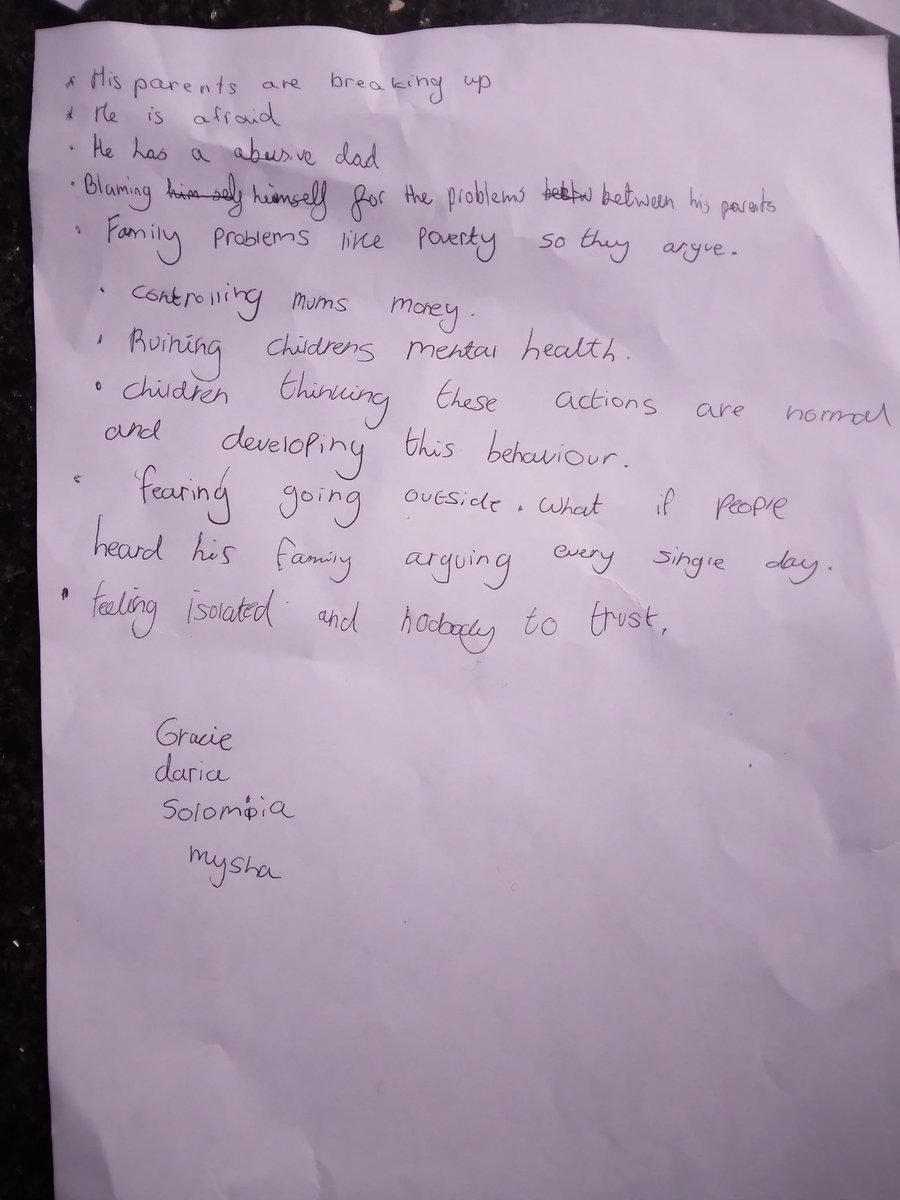 * His parents are breaking up
* He is afraid
· He has a abusive dad
· Blaming him self himself for the problems between his parents
· Family problems like poverty so they argue.
· controlling mums money.
· Ruining childrens mental health.
· children thinking these actions are normal
and developing this behaviour.
· fearing going outside. What if people
heard his family arguing every single day.
· feeling isolated and nobody to trust,
Gracie
daria
Solomiia
mysha